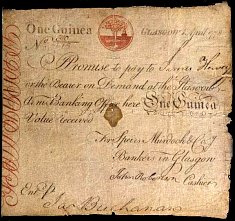 One Guinea GLASGOW
No.
I Promise to pay to James
or the Bearer on Demand at the Glasgow
Arms Banking Office here One Guinea
Value received
For Speirs Murdoch & Co.
Bankers in Glasgow
John Robertson Cashier
Ent.d
Jas Buchanan